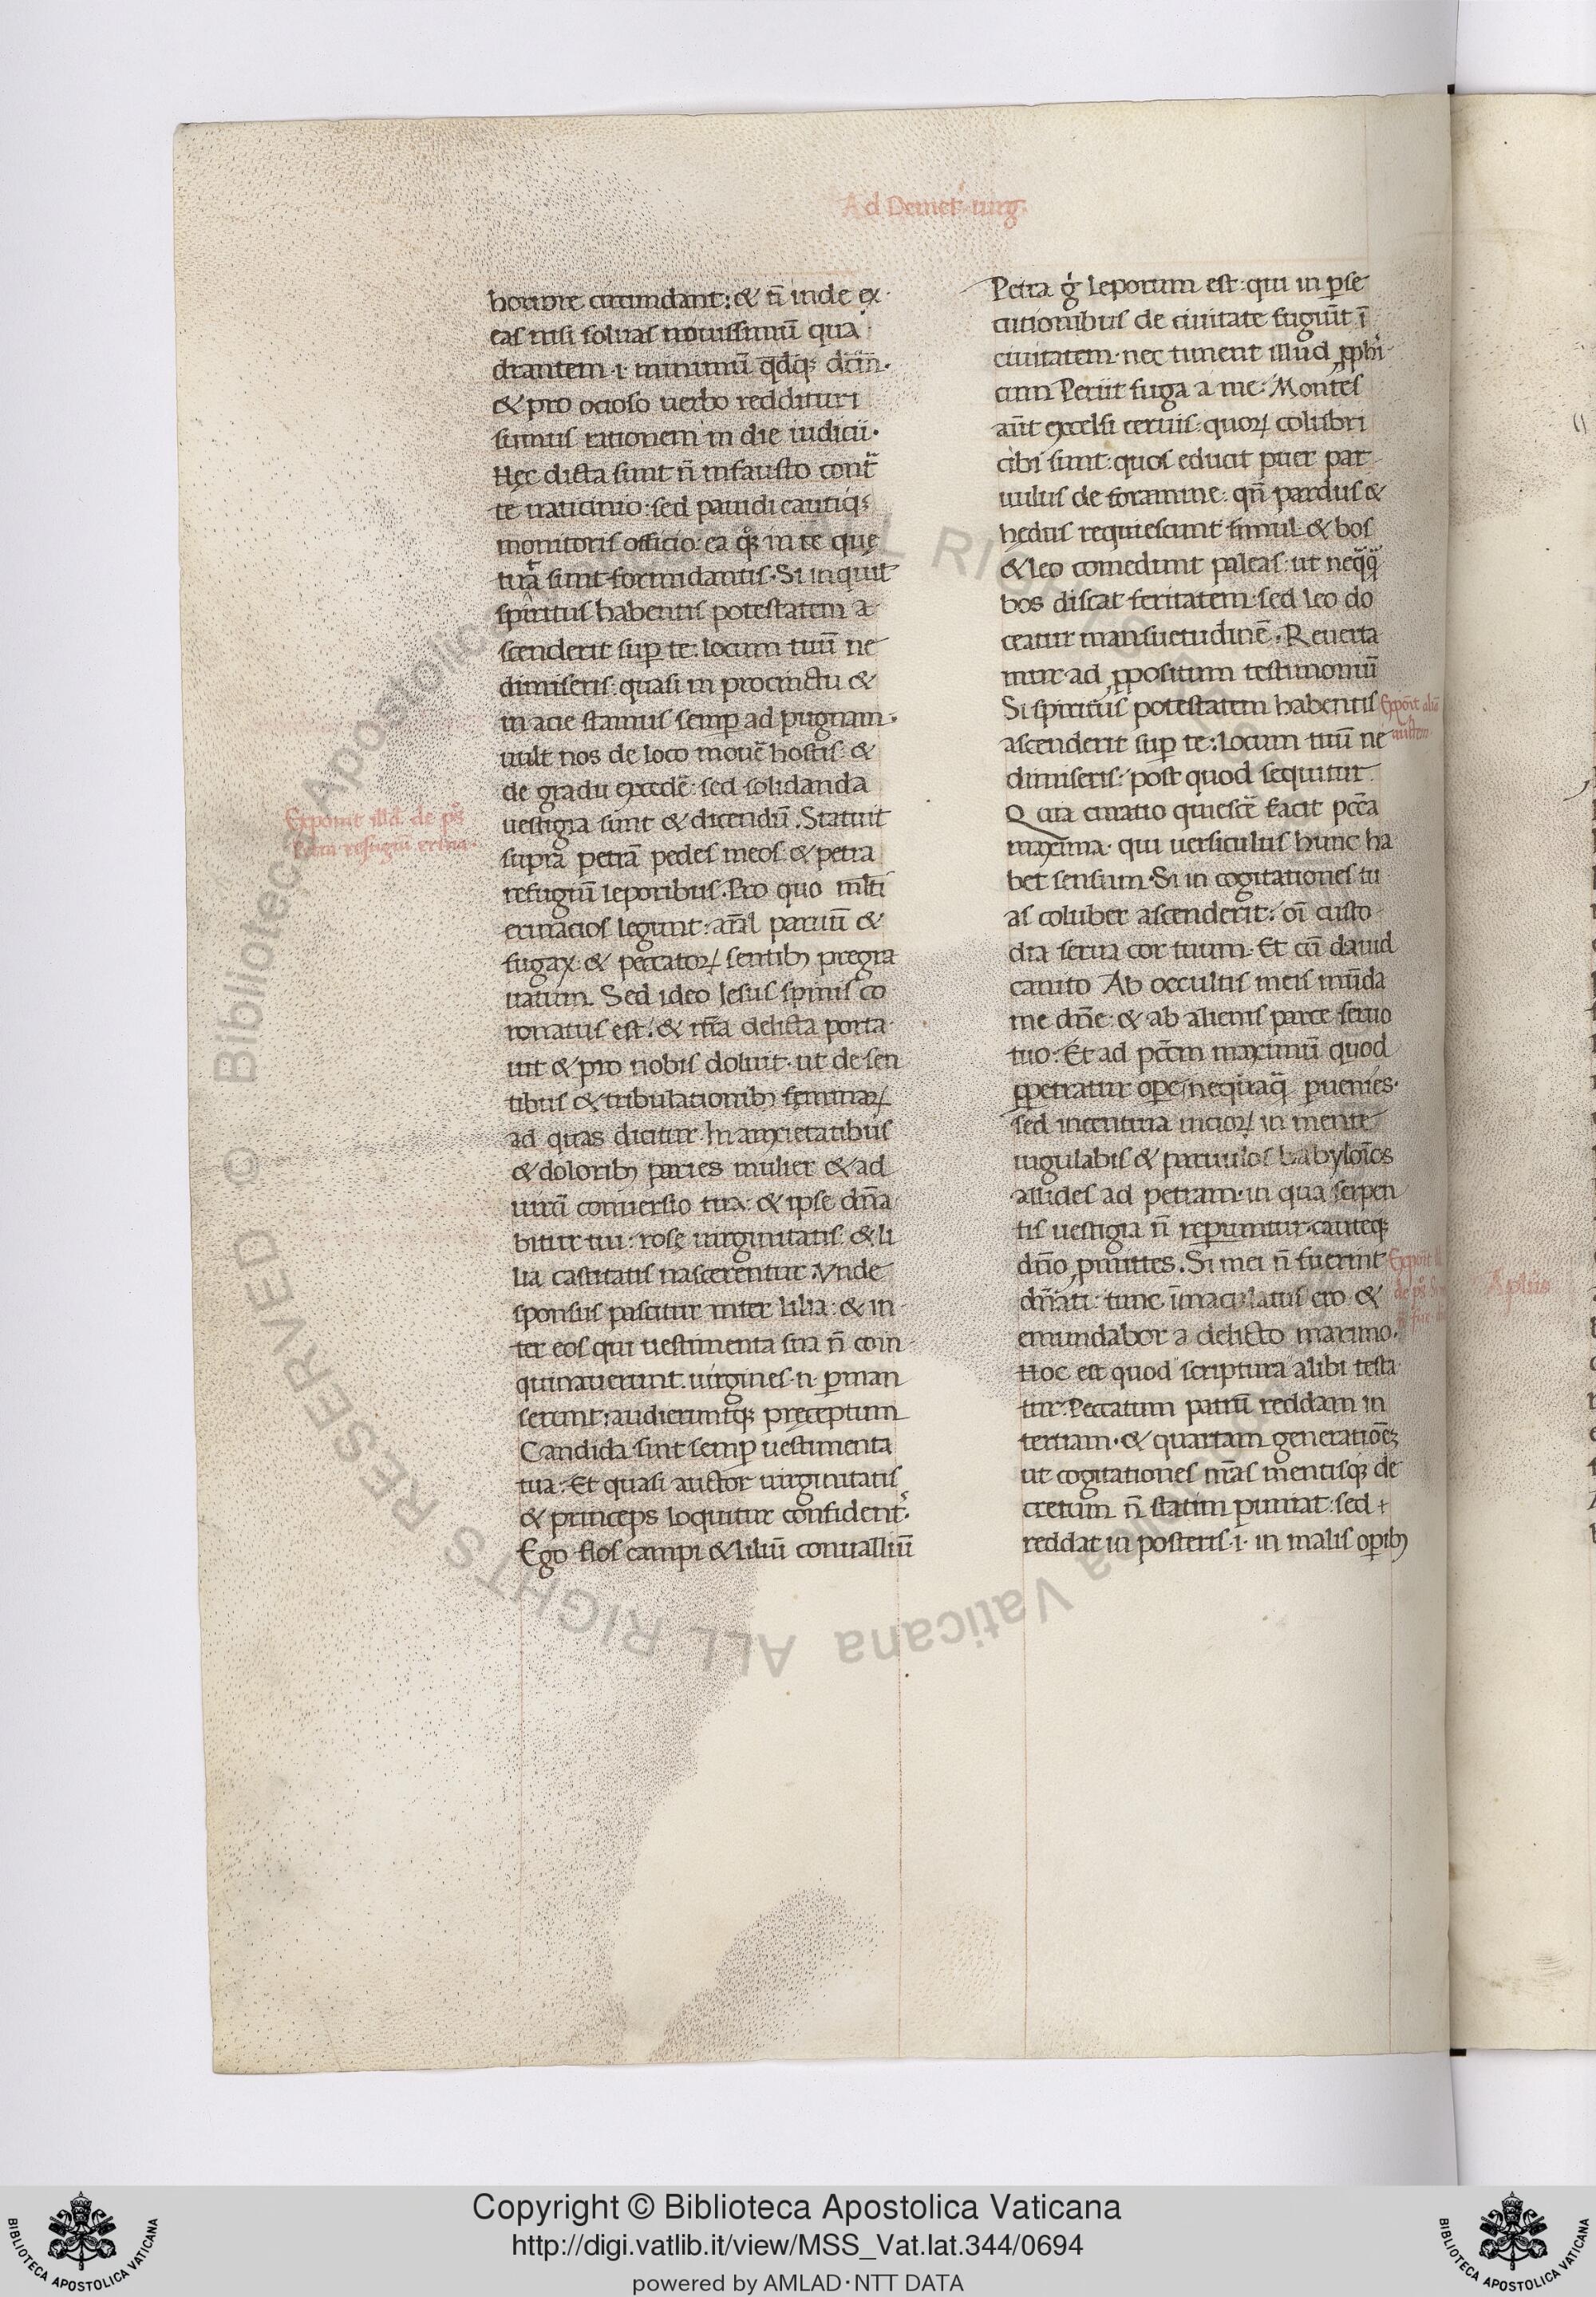 Ad Demet. uirg.
horrore circundant: & n̄ inde ex
eas nisi soluas nouissimū qua
drantem .i. minimū qd̄q; dctm̄.
& pro ocioso uerbo reddituri
sumus rationem in die iudicii.
Hęc dicta sunt n̄ infausto cont̄
te uaticinio: sed pauidi cautiq;
monitoris officio: ea q̊q; in te quę
tuta sunt formidantis. Si inquit
spiritus habentis potestatem a
scenderit sup te: locum tuū ne
dimiseris: quasi in procinctu &
in acie stamus semp ad pugnam.
uult nos de loco mouē hostis: &
de gradu excedē: sed solidanda
uestigia sunt & dicendū. Statuit
supra petrā pedes meos: & petra
refugiū leporibus. Pro quo ml̄ti
erinacios legunt: aīal paruū &
fugax: & peccatoꝝ sentibꝫ pregra
uatum. Sed ideo Iesus spinis co
ronatus est: & nr̄a delicta porta
uit & pro nobis doluit. ut de sen
tibus & tribulationibꝫ feminaꝝ
ad quas dicitur. In anxietatibus
& doloribꝫ paries mulier & ad
uirū conuersio tua: & ipse dn̄a
bitur tui: rosę uirginitatis: & li
lia castitatis nascerentur. Vnde
sponsus pascitur inter lilia: & in
ter eos qui uestimenta sua n̄ coin
quinauerunt. uirgines .n. pman
serunt: audieruntq; pręceptum
Candida sint semp uestimenta
tua. Et quasi auctor uirginitatis
& princeps loquitur confident̄.
Ego flos campi & liliū conualliū
Petra g̊ leporum est: qui in pse
cutionibus de ciuitate fugiūt ī
ciuitatem. nec timent illud ꝓphi
cum Periit fuga a me: Montes
aūt excelsi ceruis: quoꝝ colubri
cibi sunt: quos educit puer par
uulus de foramine. qn̄ pardus &
hędus requiescunt simul & bos
& leo comedunt paleas: ut neq̄q̄
bos discat feritatem: sed leo do
ceatur mansuetudinē. Reuerta
mur ad ꝓpositum testimoniū
Si spiritus potestatem habentis
ascenderit sup te: locum tuū ne
dimiseris: post quod sequitur
Quia curatio quiescē facit pcc̄a
maxima. qui uersiculus hunc ha
bet sensum. Si in cogitationes tu
as coluber ascenderit: oī custo
dia serua cor tuum. Et cū dauid
canito Ab occultis meis mūda
me dn̄e: & ab alienis parce seruo
tuo. Et ad pcc̄m maximū quod
ppetratur ope, nequaq̄ puenies.
sed incentiua uicioꝝ in mente
iugulabis & paruulos babylōios
allides ad petram. in qua serpen
tis uestigia n̄ repiuntur. cauteq;
dn̄o ꝓmittes. Si mei n̄ fuerint
dn̄ati: tunc īmaculatus ero &
emundabor a delicto maximo.
Hoc est quod scriptura alibi testa
tur. Peccatum patrū reddam in
tertiam. & quartam generatioēꝫ
ut cogitationes nr̄as mentisq; de
cretum n̄ statim puniat: sed
reddat in posteris .i. in malis opibꝫ
Exponit illd. de ps̄
Petra refugiū erina.
Exponit aliū
Exponit
de ps̄
Aplūs
Biblioteca Apostolica Vaticana ALL RIGHTS RESERVED ©
Copyright © Biblioteca Apostolica Vaticana
http://digi.vatlib.it/view/MSS_Vat.lat.344/0694
powered by AMLAD·NTT DATA
BIBLIOTECA APOSTOLICA VATICANA
BIBLIOTECA APOSTOLICA VATICANA